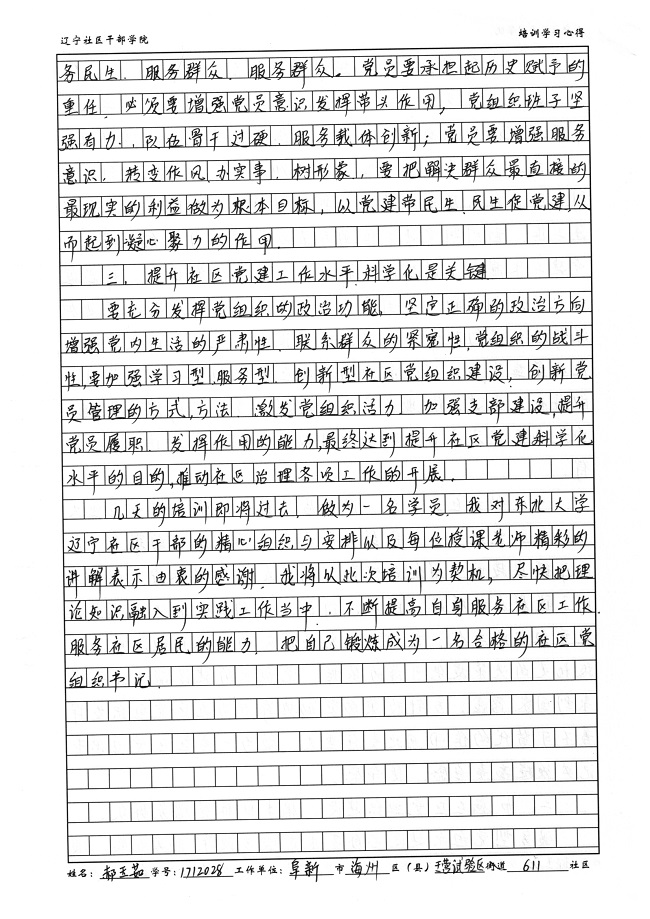 辽宁社区干部学院 培训学习心得
务民生、服务群众、服务群众。党员要承担起历史赋予的
重任、必须要增强党员意识发挥带头作用,党组织班子坚
强有力、队伍骨干过硬、服务载体创新;党员要增强服务
意识、转变作风、办实事、树形象,要把解决群众最直接的
最现实的利益做为根本目标,以党建带民生、民生促党建,从
而起到凝心聚力的作用.
三、提升社区党建工作水平科学化是关键
要充分发挥党组织的政治功能,坚定正确的政治方向
增强党内生活的严肃性、联系群众的紧密性,党组织的战斗
性,要加强学习型,服务型、创新型社区党组织建设,创新党
员管理的方式,方法、激发党组织活力、加强支部建设,提升
党员履职、发挥作用的能力,最终达到提升社区党建科学化
水平的目的,推动社区治理各项工作的开展.
几天的培训即将过去,做为一名学员,我对东北大学
辽宁社区干部的精心组织与安排以及每位授课老师精彩的
讲解表示由衷的感谢.我将以此次培训为契机,尽快把理
论知识融入到实践工作当中、不断提高自身服务社区工作、
服务社区居民的能力、把自己锻炼成为一名合格的社区党
组织书记.
姓名:郝玉茹 学号:1712028 工作单位:阜新 市 海州 区(县) 试验区街道 611 社区